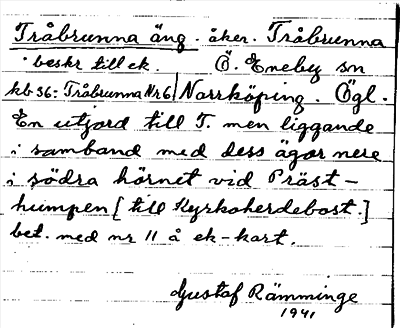 Tråbrunna äng. åker. Tråbrunna
beskr till ek. Ö. Eneby sn
kb 36: Tråbrunna Nr 6 Norrköping. Ögl.
En utjord till T. men liggande
i samband med dess ägor nere
i södra hörnet vid Präst-
humpen [till Kyrkoherdebost.]
bet. med nr 11 å ek-kart.
Gustaf Rämminge
1941